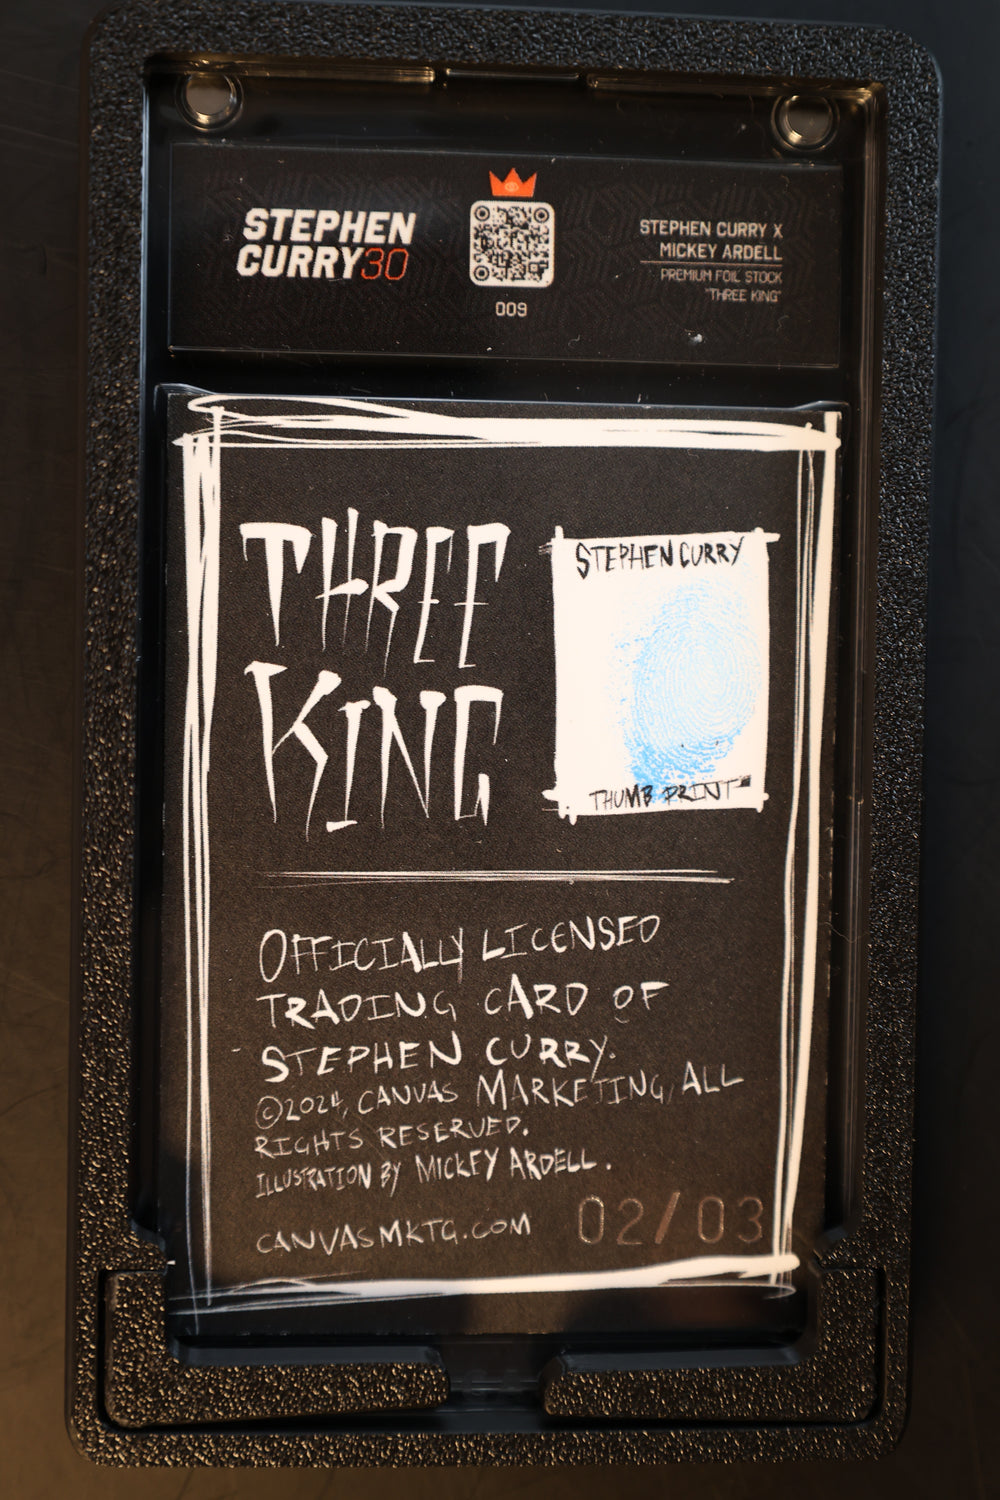 STEPHEN
CURRY30
009
STEPHEN CURRY X
MICKEY ARDELL
PREMIUM FOIL STOCK
"THREE KING"
THREE
KING
STEPHEN CURRY
THUMB PRINT
OFFICIALLY LICENSED
TRADING CARD OF
STEPHEN CURRY.
©2024, CANVAS MARKETING, ALL
RIGHTS RESERVED.
ILLUSTRATION BY MICKEY ARDELL.
CANVASMKTG.COM
02/03